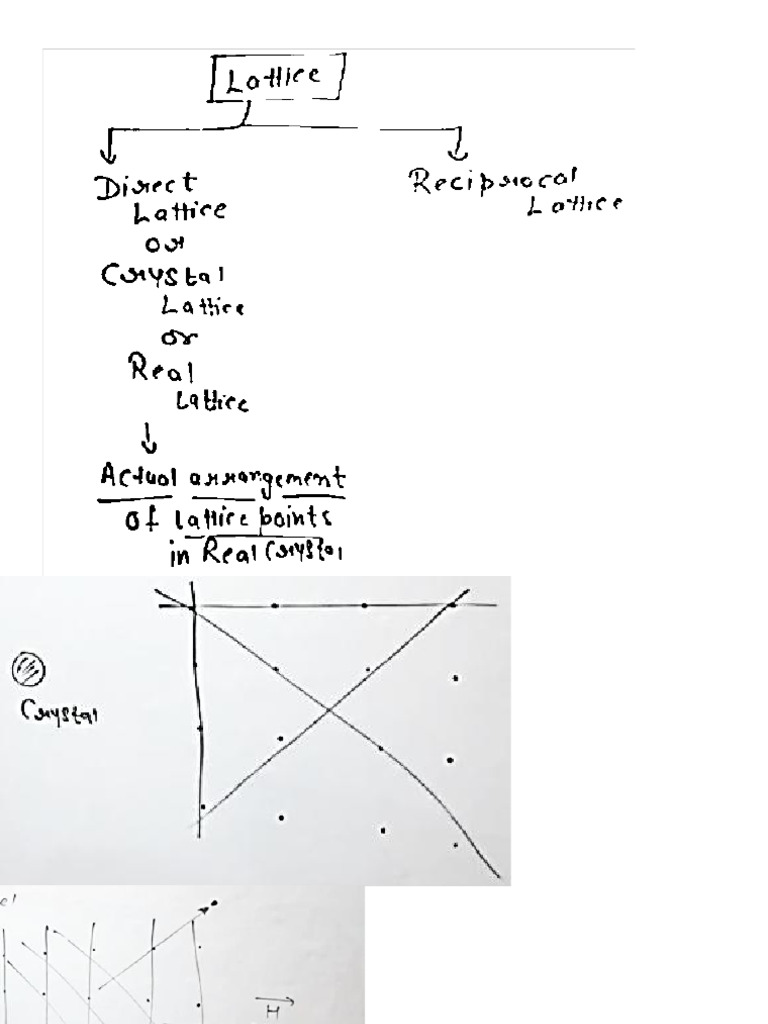 Lattice
Direct
Lattice
or
Crystal
Lattice
or
Real
Lattice
Reciprocal
Lattice
Actual arrangement
of lattice points
in Real Crystal
Crystal
H